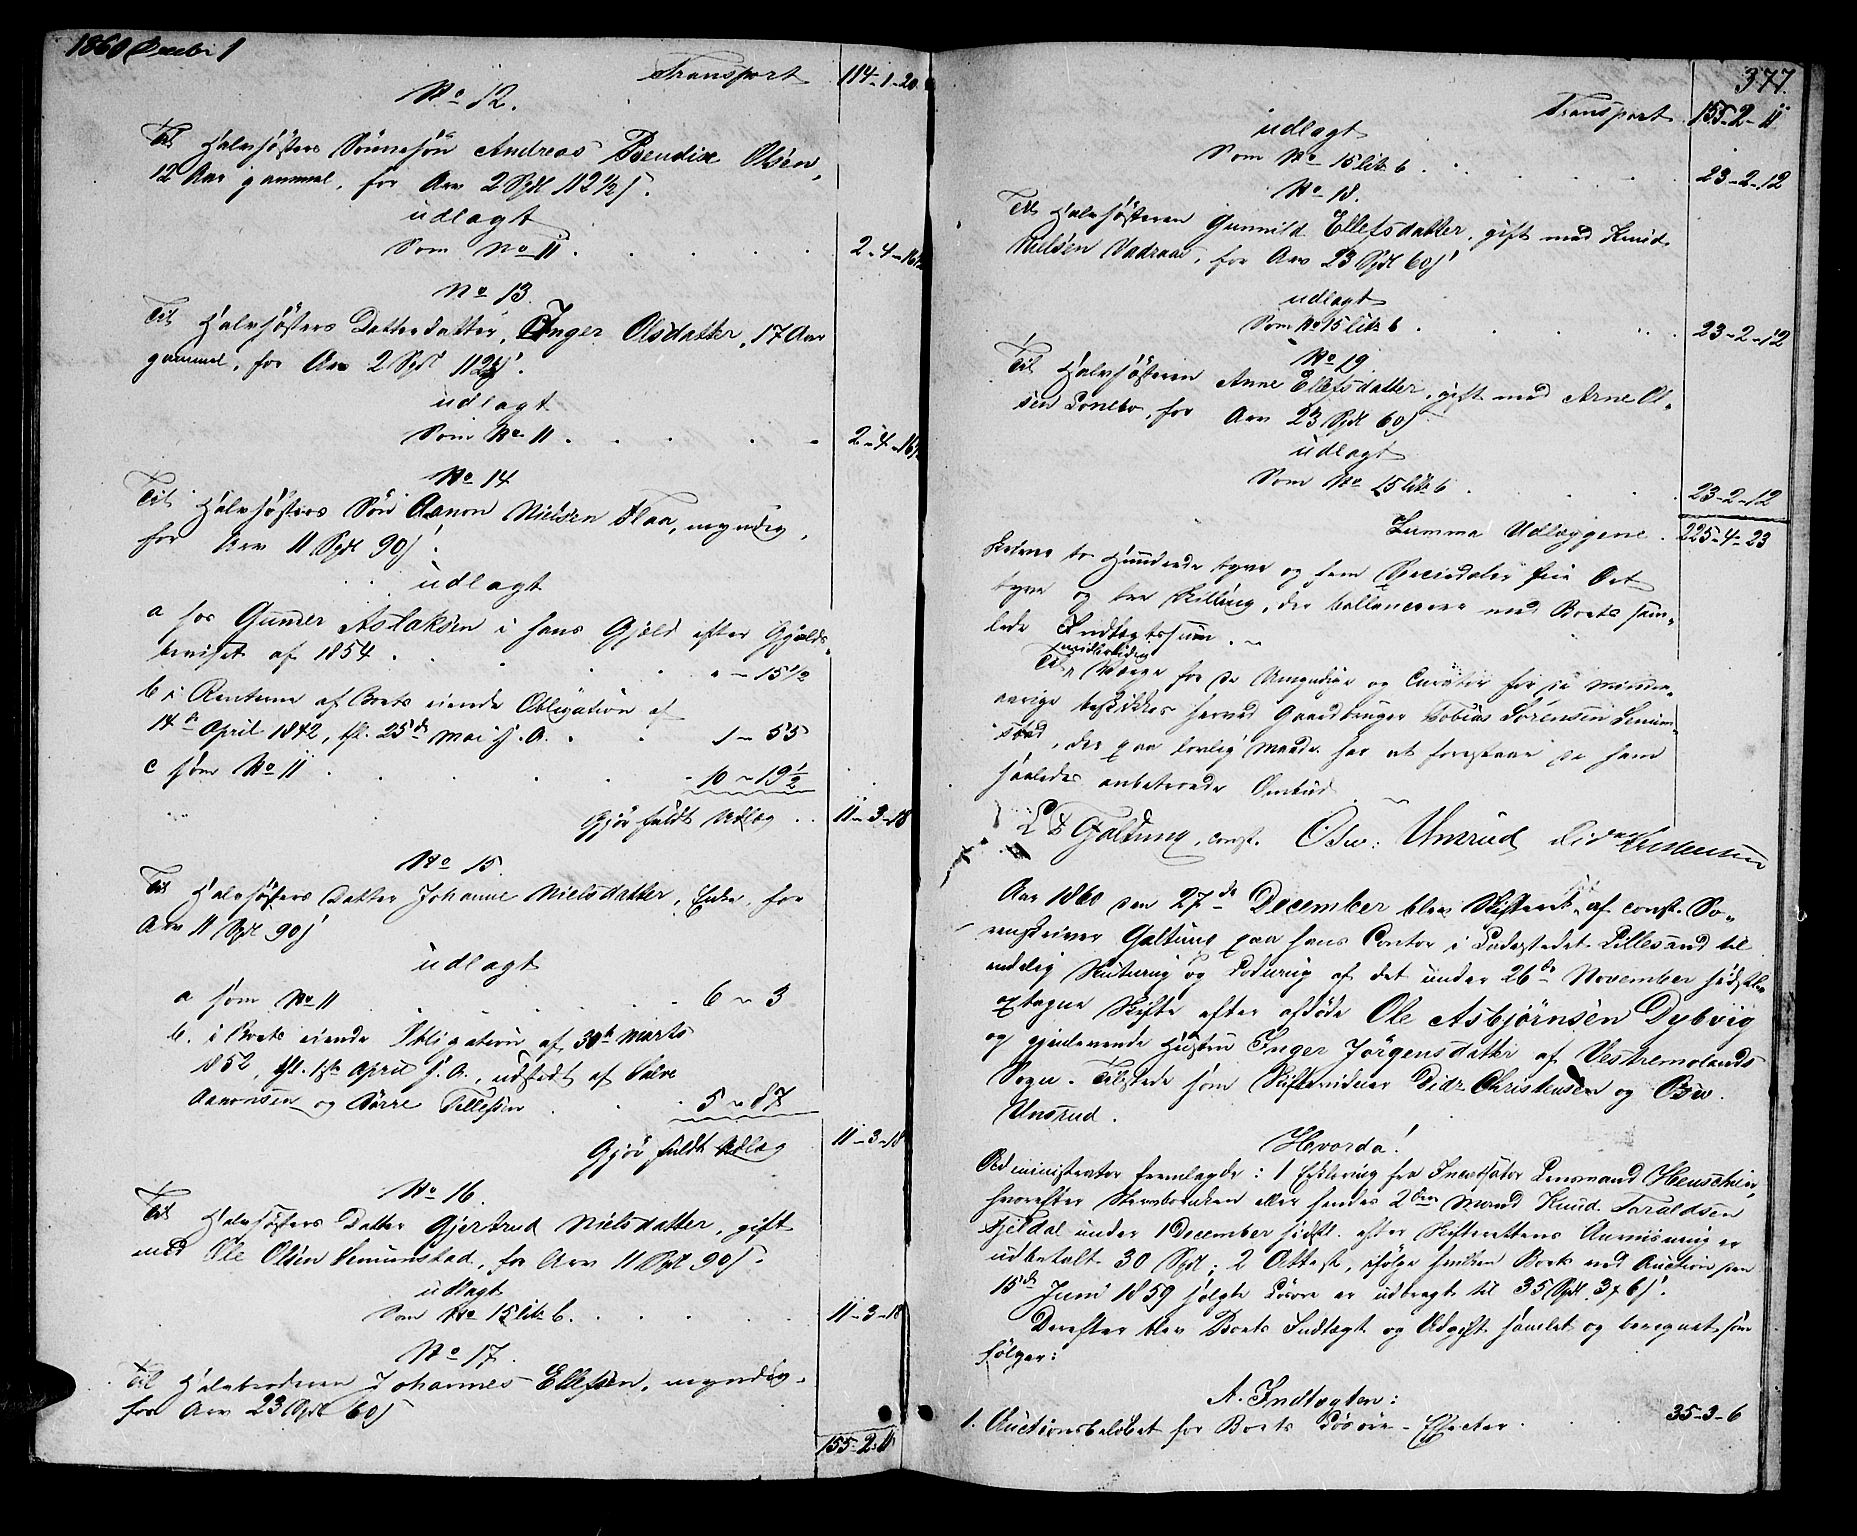 1860 Decbr 1
Transport 114-1-20
No 12.
Til Halvsøsters Sønnesøn Andreas Bendix Olsen,
12 Aar gammel, for Arv 2 Spdl 112½ s.
udlagt
Som No 11 . . . . . 2-4-16½
No 13.
Til Halvsøsters Datterdatter, Inger Olsdatter, 17 Aar
gammel, for Arv 2 Spdl 112½ s.
udlagt
Som No 11 . . . . . 2-4-16½
No 14
Til Halvsøsters Søn Aanon Nielsen Flaa, myndig,
for Arv 11 Spdl 90 s.
udlagt
a hos Gunder Aslaksen i hans Gjæld efter Gjælds-
beviset af 1854 . . . . " - 15½
b i Renterne af Boets eiende Obligation af
14de April 1842, thl. 25de Mai s. A. . . 1 - 55
c som No 11 . . . . . 10 - 19½
Gjør fuldt Udlæg . . 11-3-18
No 15.
Til Halvsøsters Datter Johanne Nielsdatter, Enke, for
Arv 11 Spdl 90 s
udlagt
a som No 11 . . . . . 6 - 3
b. i Boets eiende Obligation af 30te Marts
1852, thl. 1ste April s. A., udstedt af Salve
Aanonsen og Børre Tellefsen . . . 5 - 87
Gjør fuldt Udlæg 11-3-18
No 16.
Til Halvsøsters Datter Gjertrud Nielsdatter, gift
med Ole Olsen Semumstad, for Arv 11 Spdl 90 s.
udlagt
Som No 15 litr b. . . . . 11-3-18
No 17.
Til Halvbroderen Johannes Ellefsen, myndig,
for Arv 23 Spdl 60 s
155-2-11
377.
Transport 155-2-11
udlagt
Som No 15 litr b . . . . . 23-2-12
No 18.
Til Halvsøsteren Gunnild Ellefsdatter, gift med Knud
Nielsen Vadraae, for Arv 23 Spdl 60 s
udlagt
Som No 15 litr b . . . . . 23-2-12
No 19
Til Halvsøsteren Anne Ellefsdatter, gift med Arne Ol-
sen, for Arv 23 Spdl 60 s
udlagt
Som No 15 litr b . . . . . 23-2-12
Summa Udlæggene . 225-4-23
skriver to Hundrede tyve og fem Speciedaler fire Ort
tyve og tre Skilling, der ballancerer med Boets sam-
lede Indtægtssum. -
Til midlertidig Værge for de Umyndige og Curator for de Minder-
aarige beskikkes herved Gaardbruger Tobias Sørensen Semum-
stad, der paa lovlig Maade har at forestaae de ham
saaledes anbetroede Ombud.
Galtung, const. Osw: Unsrud Didr Christensen
Aar 1860 den 27de December blev Skifteret af const. So-
renskriver Galtung paa hans Contor i Ladestedet Lillesand til
endelig Slutning og Lodning af det under 26de November sidstl.
optagne Skifte efter afdøde Ole Asbjørnsen Dybvig
og gjenlevende Hustru Inger Jørgensdatter af Vestremolands
Sogn. Tilstede som Skiftevidner Didr Christensen og Osw.
Unsrud.
Hvorda!
Administrator fremlagde: 1 Erklæring fra Incassator Lensmand Henschien,
hvorefter Stervboenken eller hendes 2den Mand Knud Taraldsen
Fjeldal under December sidstl. efter Skifterettens Anviisning er
udbetalt 30 Spdl; 2 Attest, ifølge hvilken Boets ved Auction den
15de Juni 1859 solgte Løsøre er udbragt til 35 Spdl 3 # 6 s.
Derefter blev Boets Indtægt og Udgift samlet og beregnet som
følger:
A. Indtægten:
1. Auctionsbeløbet for Boets Løsøre-Effecter . . . 35-3-6